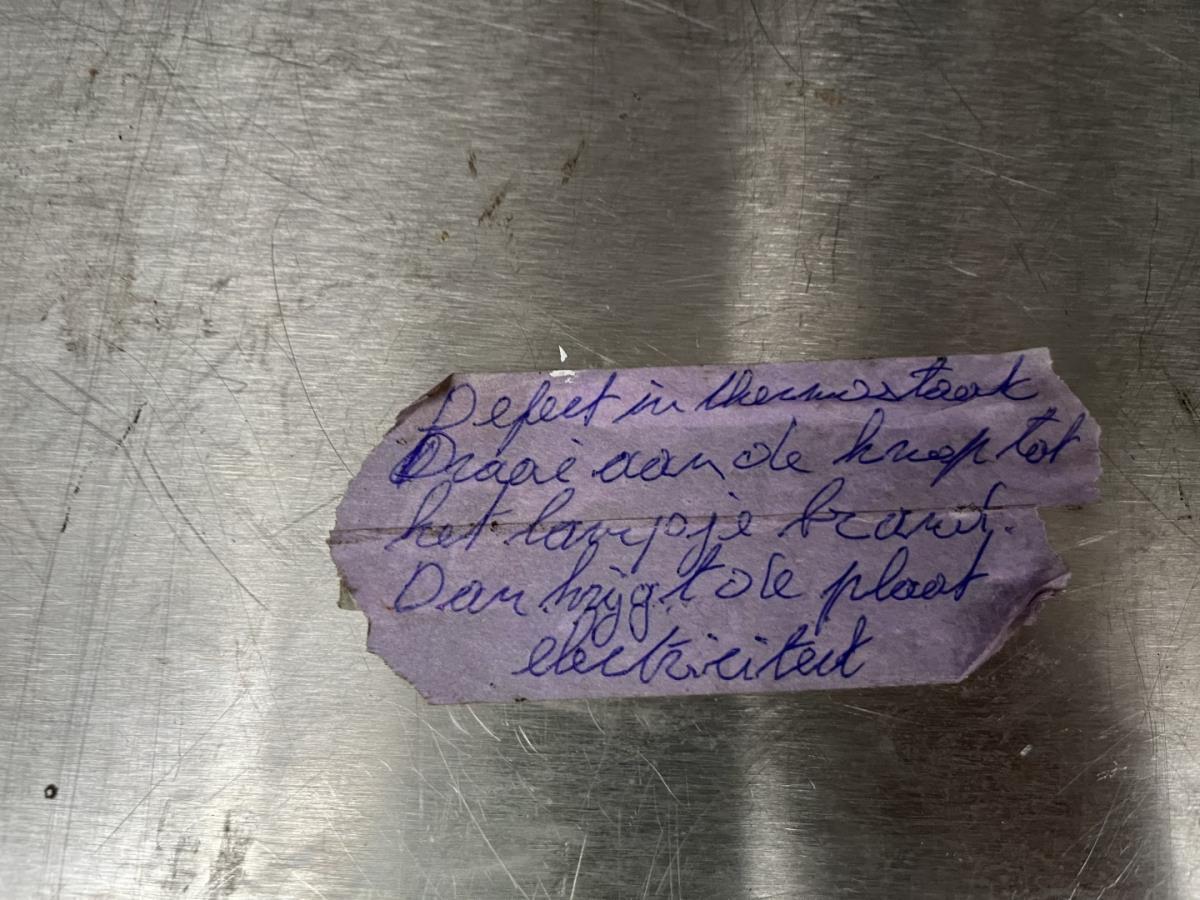 Defect in thermostaat
Draai aan de knop tot
het lampje brand.
Dan krijgt de plaat
electriciteit